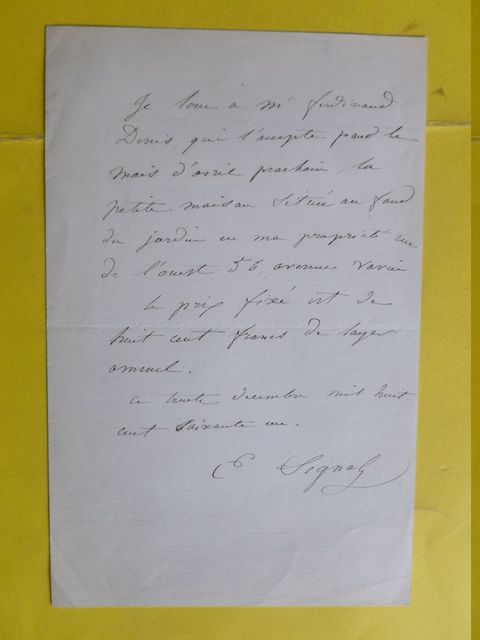 Je loue à Mr ferdinand
Denis qui l'accepte pour le
mois d'avril prochain, la
petite maison située au fond
du jardin en ma propriété rue
de l'ouest 56 avenue
le prix fixé est de
huit cent francs de loyer
annuel.
ce trente decembre mil huit
cent soixante un.
E Signol